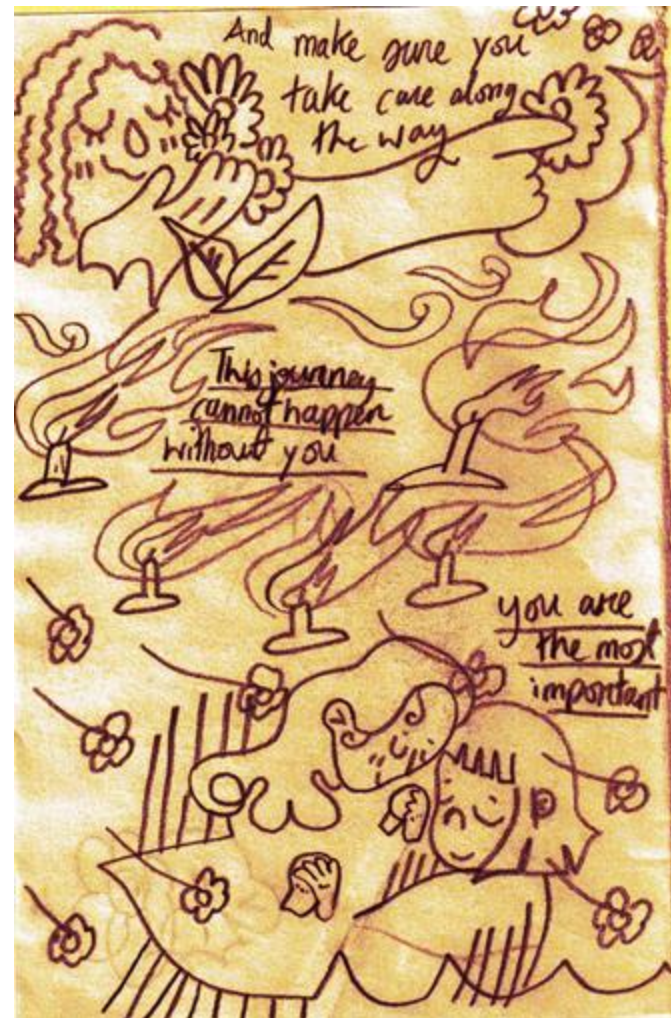 And make sure you
take care along
the way
This journey
cannot happen
without you
you are
the most
important